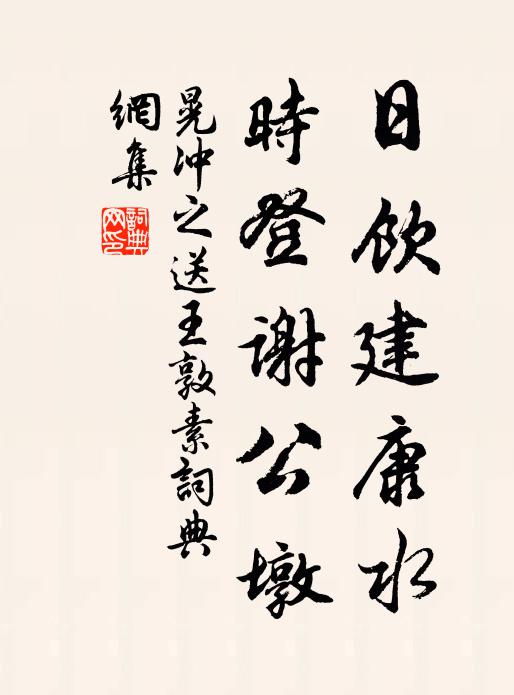 日飲建康水
時登謝公墩
晁沖之送王敦素詞典
網集
詞典
网印